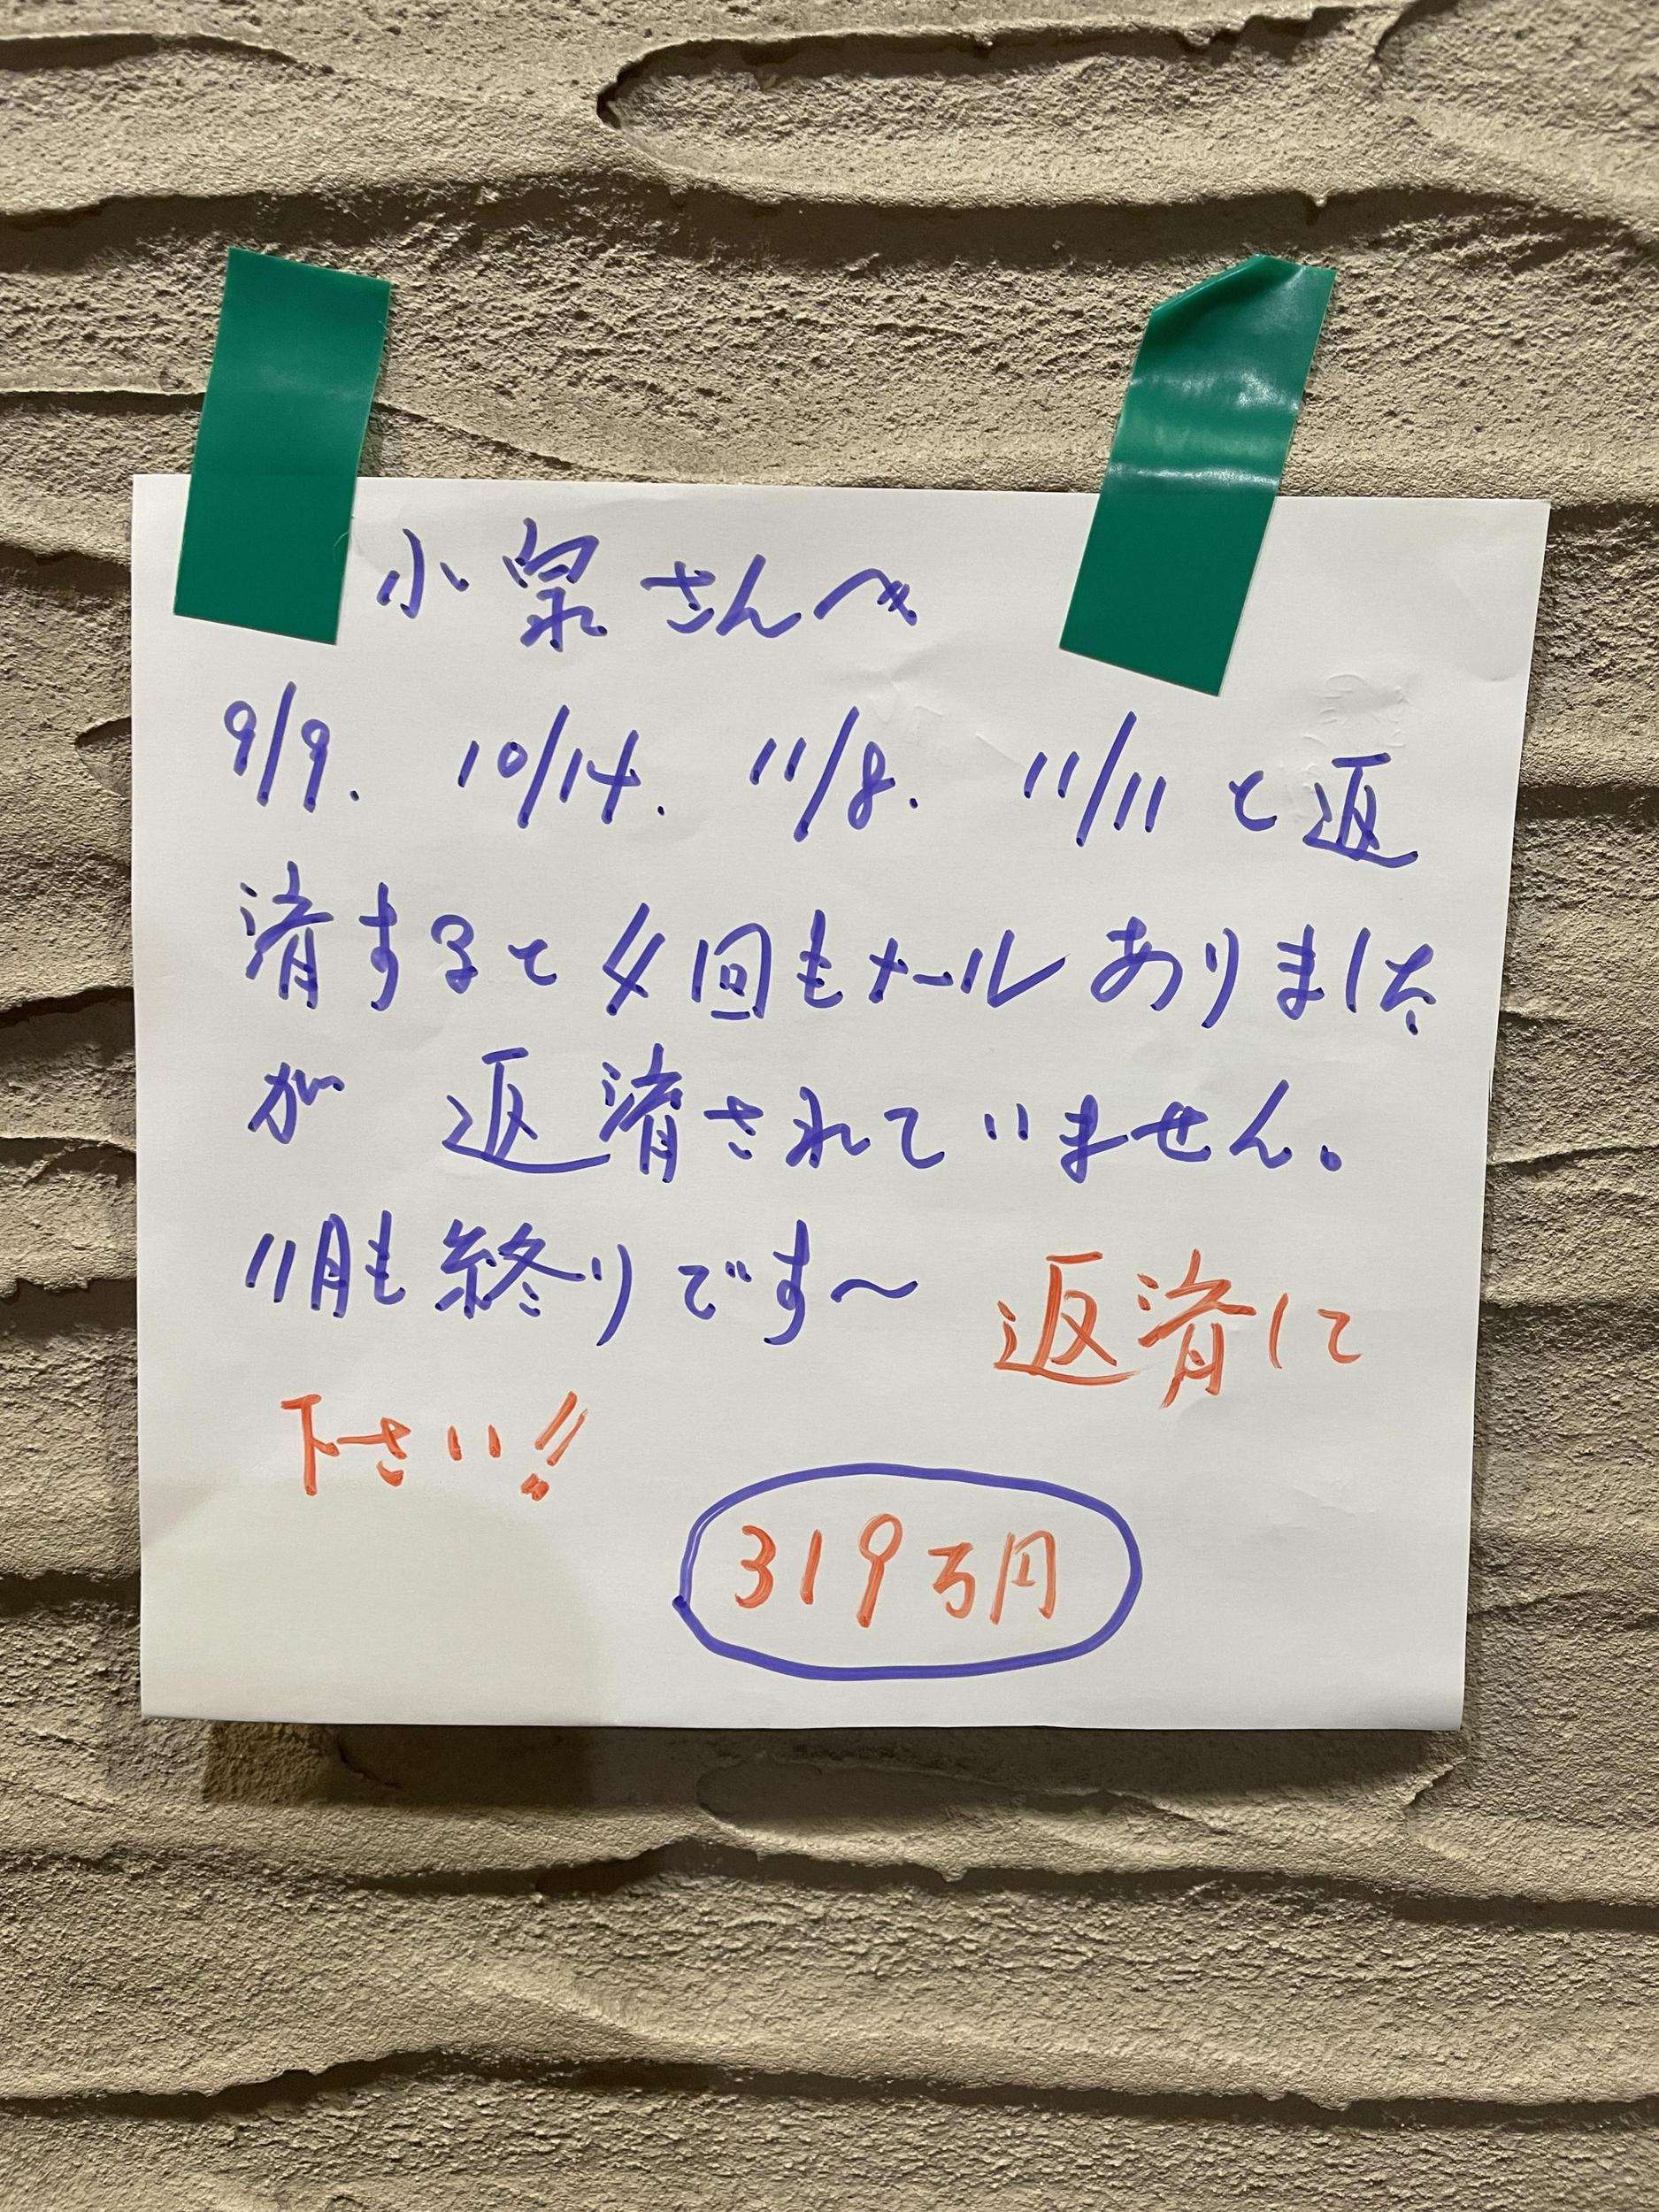 小泉さんへ
9/9. 10/14. 11/8. 11/11と返
済すると4回もメールありました
が 返済されていません。
11月も終りです〜 返済して
下さい!!
319万円